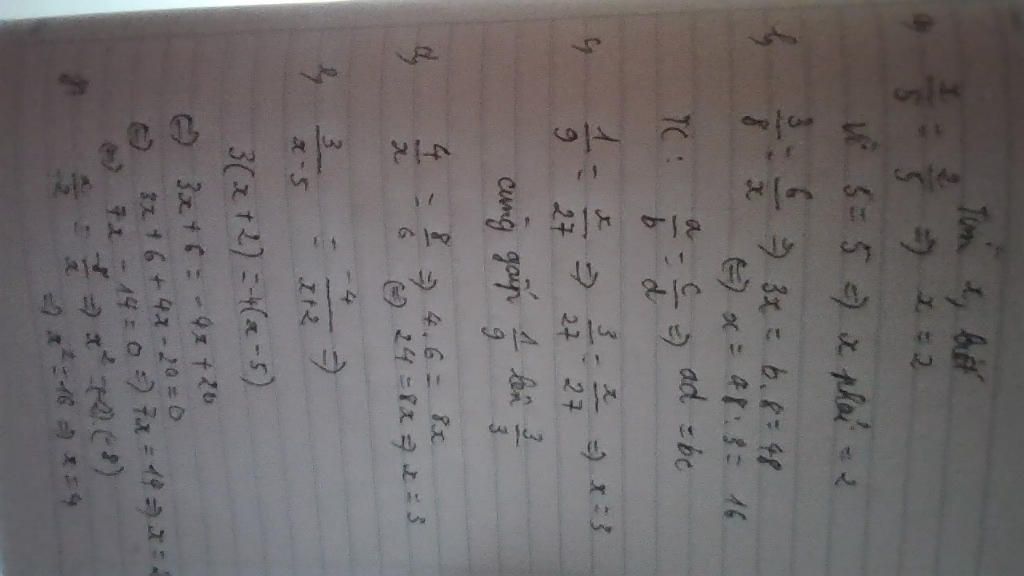 Tìm x, biết
a, x/5 = 2/5 => x = 2
Vì 5 = 5 => x phải = 2
b, 3/8 = 6/x => 3x = 6.8 = 48
(=) x = 48 : 3 = 16
TC: a/b = c/d => ad = bc
c, 1/9 = x/27 => 3/27 = x/27 => x = 3
cùng gấp 1/9 lên 3/3
d, 4/x = 8/6 => 4.6 = 8x
(=) 24 = 8x => x = 3
e, 3/x-5 = -4/x+2 =>
3(x + 2) = -4(x - 5)
(=) 3x + 6 = -4x + 20
(=) 3x + 6 + 4x - 20 = 0
(=) 7x - 14 = 0 => 7x = 14 => x = 2
=> x² = (-2).(-8)
=> x² = 16 => x = 4